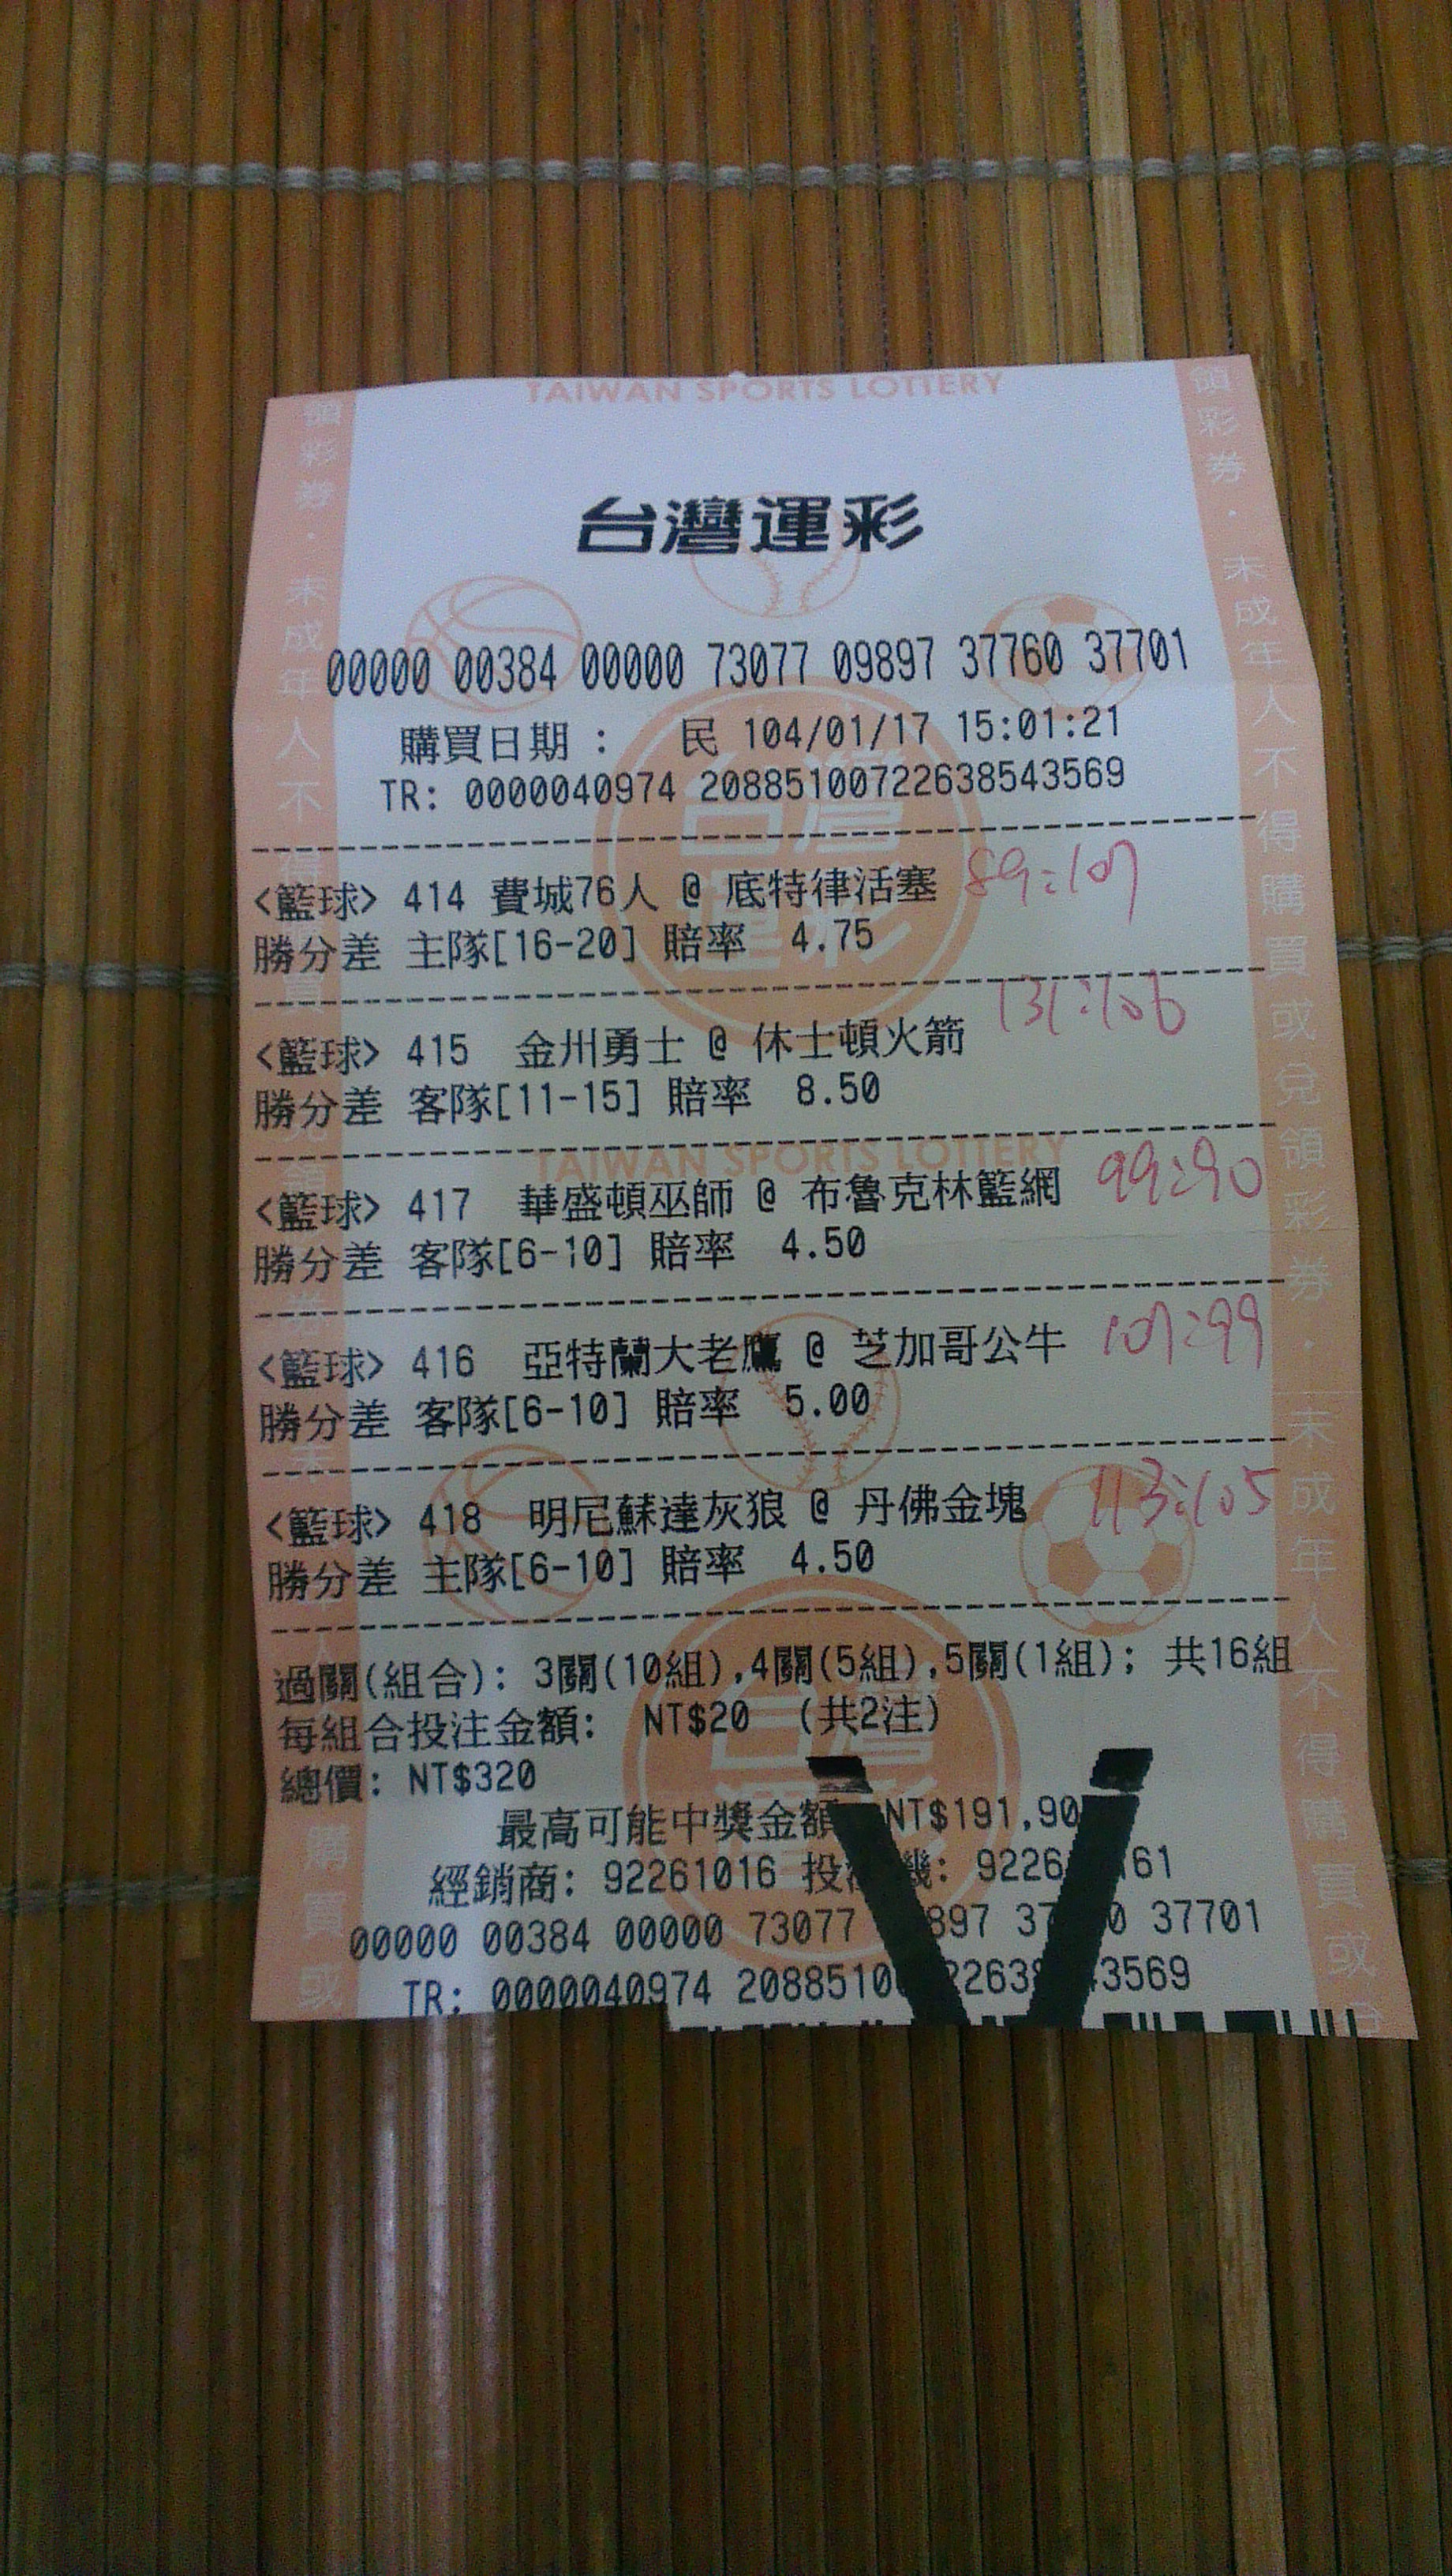 TAIWAN SPORTS LOTTERY
台灣運彩
00000 00384 00000 73077 09897 37760 37701
購買日期 : 民 104/01/17 15:01:21
TR: 0000040974 20885100722638543569
<籃球> 414 費城76人 @ 底特律活塞 89:107
勝分差 主隊[16-20] 賠率 4.75
<籃球> 415 金州勇士 @ 休士頓火箭 131:106
勝分差 客隊[11-15] 賠率 8.50
TAIWAN SPORTS LOTTERY
<籃球> 417 華盛頓巫師 @ 布魯克林籃網 99:90
勝分差 客隊[6-10] 賠率 4.50
<籃球> 416 亞特蘭大老鷹 @ 芝加哥公牛 107:99
勝分差 客隊[6-10] 賠率 5.00
<籃球> 418 明尼蘇達灰狼 @ 丹佛金塊 113:105
勝分差 主隊[6-10] 賠率 4.50
過關(組合): 3關(10組),4關(5組),5關(1組); 共16組
每組合投注金額: NT$20 (共2注)
總價: NT$320
最高可能中獎金額 NT$191,90
經銷商: 92261016 投 機: 9226 161
00000 00384 00000 73077 897 37 0 37701
TR: 0000040974 2088510 2263 3569
領彩券．未成年人不得購買或
領彩券．未成年人不得購買或兌領彩券．未成年人不得購買或